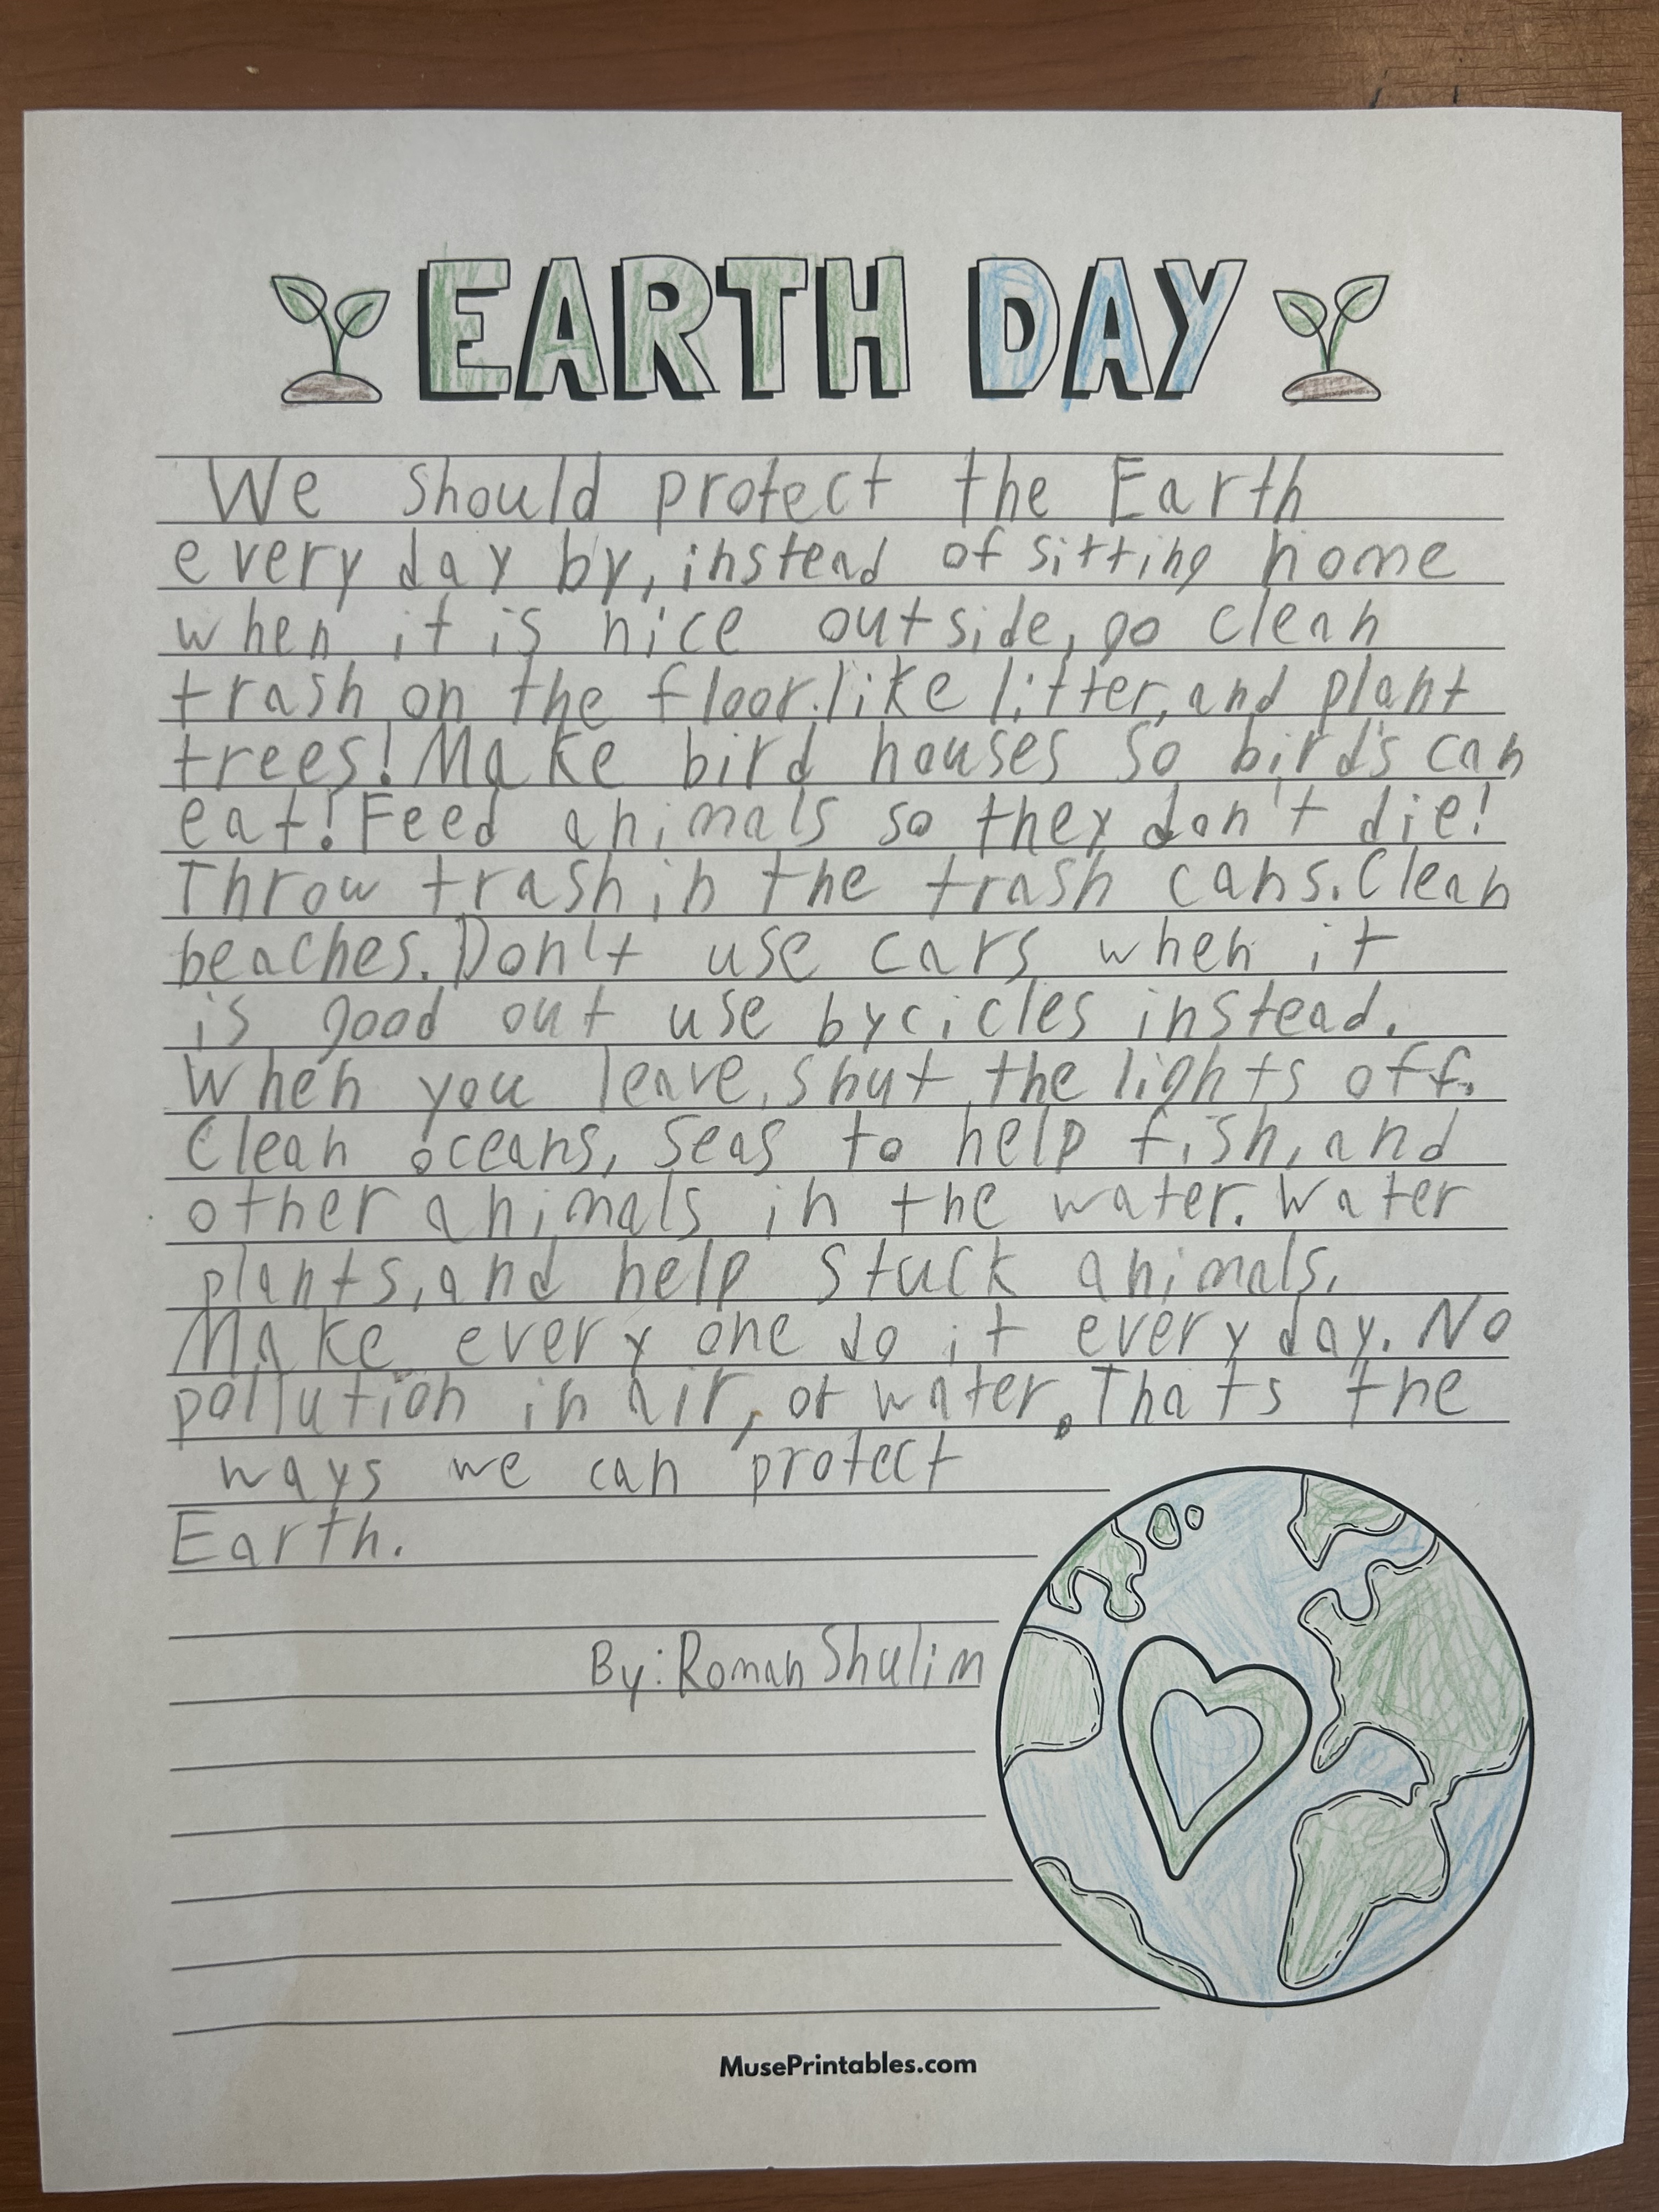 EARTH DAY
We should protect the Earth
every day by, instead of sitting home
when it is nice outside, go clean
trash on the floor.like litter, and plant
trees! Make bird houses so bird's can
eat! Feed animals so they don't die!
Throw trash in the trash cans. Clean
beaches. Don't use cars when it
is good out use bycicles instead.
When you leave, shut the lights off.
Clean oceans, seas to help fish, and
other animals in the water. Water
plants, and help stuck animals.
Make every one do it every day. No
pollution in air, or water. Thats the
ways we can protect
Earth.
By: Roman Shulim
MusePrintables.com